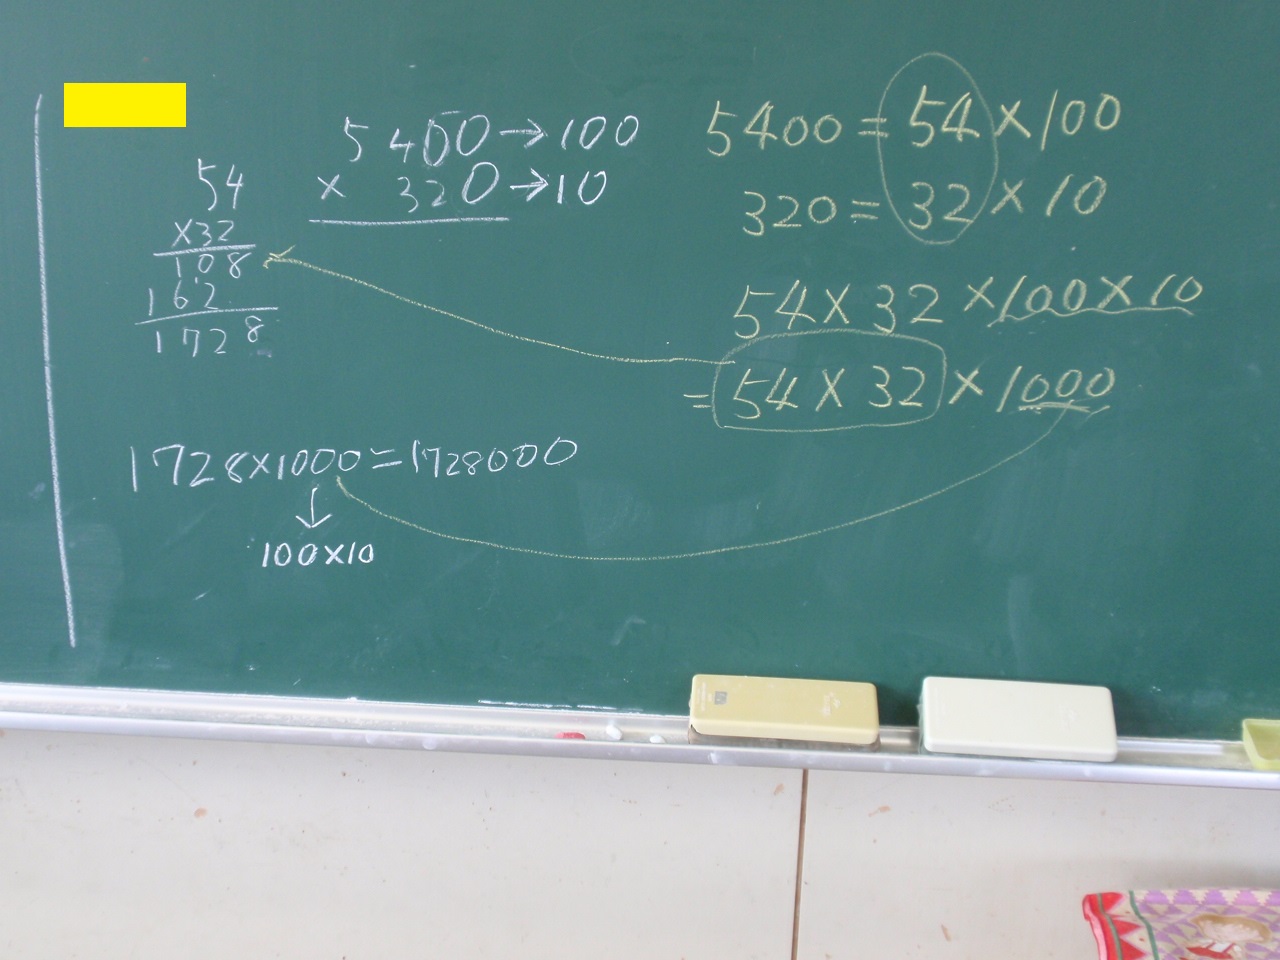 5400→100
× 320→10
54
×32
108
162
1728
1728×1000=1728000
↓
100×10
5400=54×100
320=32×10
54×32×100×10
=54×32×1000